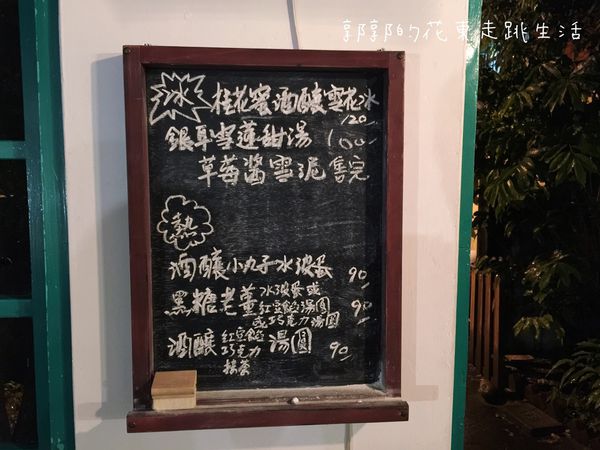 郭郭的花東走跳生活
冰
桂花蜜酒釀雪花冰
120
銀耳雪蓮甜湯 100
草莓醬雪泥 售完
熱
酒釀小丸子水波蛋 90
黑糖老薑 水波蛋或 90
紅豆餡湯圓
或巧克力湯圓
酒釀 紅豆餡 湯圓 90
巧克力
抹茶